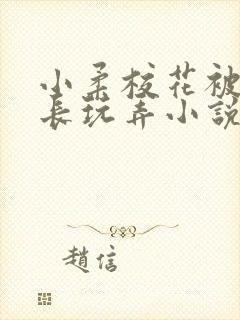 小柔校花被
長玩弄小說
趙信